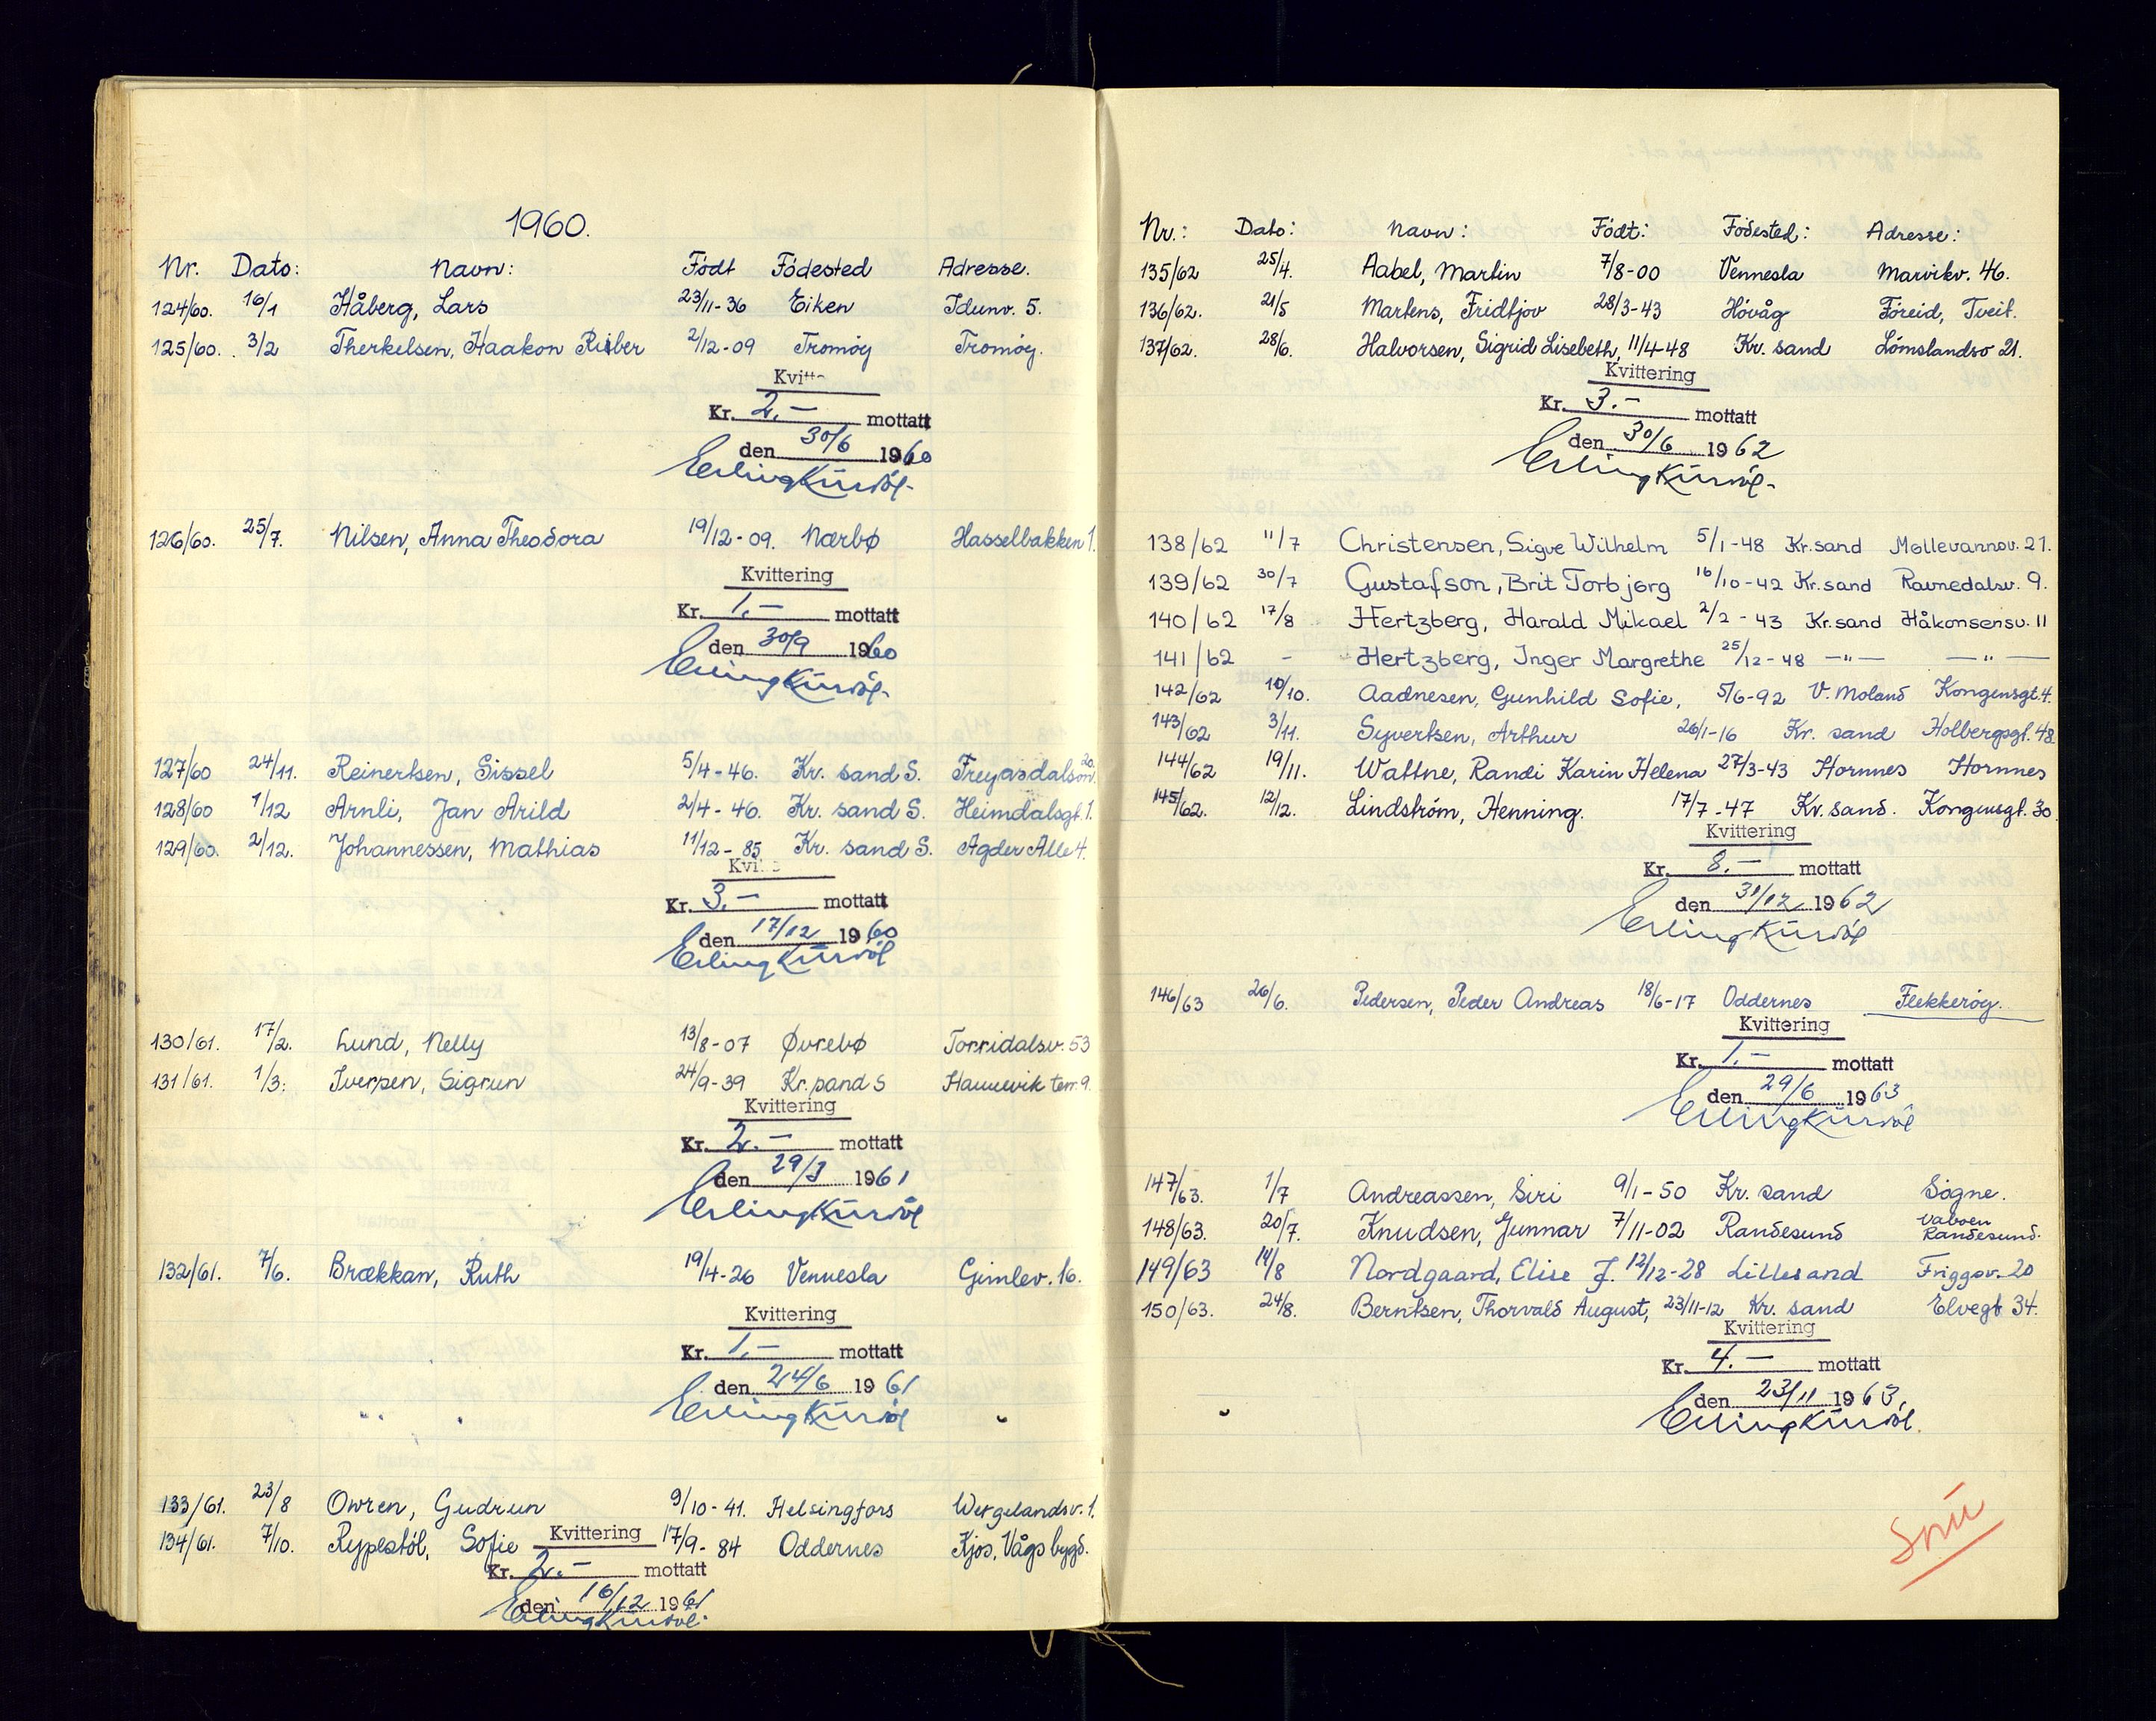 1960.
Nr. Dato: Navn: Født Fødested Adresse.
124/60. 16/1 Håberg, Lars 23/11-36 Eiken Idunv. 5.
125/60. 3/2 Therkelsen, Haakon Riber 2/12-09 Tromöy Tromöy.
Kvitt
Kr. 2.- mottatt
den 30/6 1960
126/60. 25/7. Nilsen, Anna Theodora 19/12-09. Nærbø Hasselbakken 1.
Kvittering
Kr. 1.- mottatt
den 30/9 1960
127/60 24/11. Reinertsen, Sissel 5/4-46. Kr. sand S. 20.
128/60 1/12 Arnli, Jan Arild 2/4-46. Kr. sand S. Heimdalsgt. 1.
129/60. 2/12. Johannessen, Mathias 11/12-85 Kr. sand S. Agder Alle 4.
Kvi
Kr. 3.- mottatt
den 17/12 1960
130/61. 17/2. Lund, Nelly 13/8-07 Øvrebø Torridalsv. 53
131/61. 1/3. Iversen, Sigrun 24/9-39 Kr.sand S Hannevik terr. 9.
Kvittering
Kr. 2.- mottatt
den 29/3 1961
132/61. 7/6. Brækkan, Ruth 19/4-26 Vennesla Gimlev. 16.
Kvittering
Kr. 1.- mottatt
den 24/6 1961
133/61. 23/8 Owren, Gudrun 9/10-41. Helsingfors Wergelandsv. 1.
134/61. 7/10. Rypestöl, Sofie 17/9-84 Oddernes Kjos, Vågsbygd.
Kvittering
Kr. 2.- mottatt
den 16/12 1961
Nr.: Dato: Navn: Født: Fødested: Adresse:
135/62 25/4. Aabel, Martin 7/8-00 Vennesla Marvikv. 46.
136/62. 21/5 Martens, Fridtjov 28/3-43 Hövåg Föreid, Tveit.
137/62. 28/6. Halvorsen, Sigrid Lisebeth, 11/4-48 Kr. sand Lömslandsv 21.
Kvittering
Kr. 3.- mottatt
den 30/6 1962
138/62 11/7 Christensen, Sigve Wilhelm 5/1-48 Kr.sand Møllevannsv. 21.
139/62 30/7 Gustafson, Brit Torbjørg 16/10-42 Kr.sand Ravnedalsv. 9.
140/62 17/8 Hertzberg, Harald Mikael 2/2-43 Kr.sand Håkonsensv. 11
141/62 - Hertzberg, Inger Margrethe 25/12-48 -"- -"-
142/62 10/10. Aadnesen, Gunhild Sofie, 5/6-92 V. Moland Kongensgt. 4.
143/62 3/11. Syvertsen, Arthur 26/1-16 Kr. sand Holbergsgt. 48.
144/62 19/11. Wattne, Randi Karin Helena 27/3-43 Hornnes Hornnes
145/62. 12/12. Lindström, Henning. 17/7-47 Kr. sand. Kongensgt. 30.
Kvittering
Kr. 8.- mottatt
den 31/12 1962
146/63 26/6. Pedersen, Peder Andreas 18/6-17 Oddernes Flekkeröy.
Kvittering
Kr. 1.- mottatt
den 29/6 1963
147/63. 1/7 Andreassen, Siri 9/1-50 Kr. sand Sögne.
148/63. 20/7. Knudsen, Gunnar 7/11-02 Randesund Randesund.
149/63 14/8 Nordgaard, Elise J. 12/12-28 Lillesand Friggsv. 20
150/63. 24/8. Berntsen, Thorvald August, 23/11-12 Kr. sand Elvegt 34.
Kvittering
Kr. 4.- mottatt
den 23/11 1963
Snu